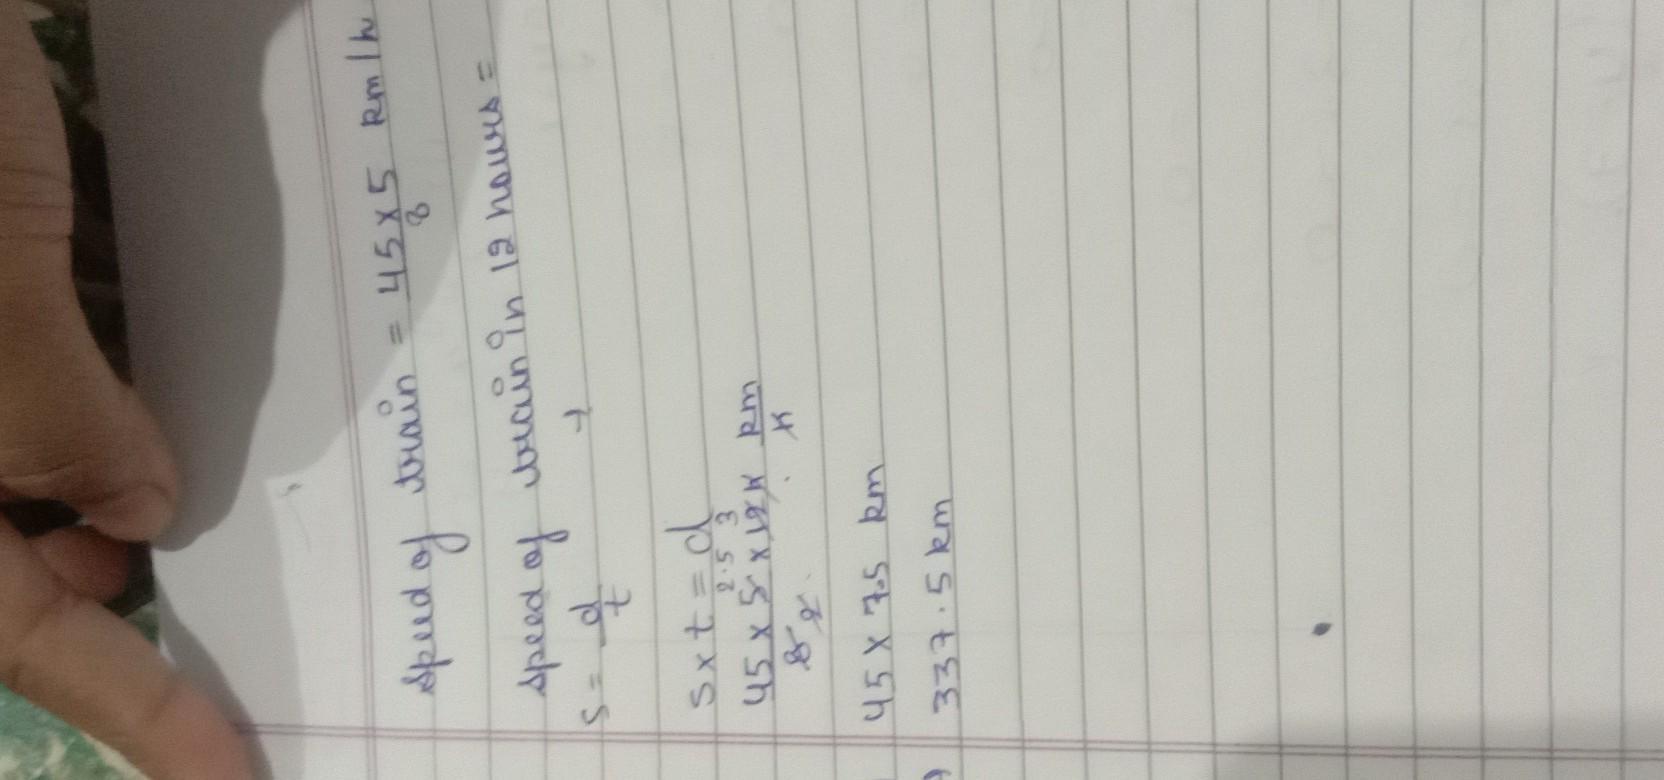 Speed of train = 45 x 5 km/h
8
Speed of train in 12 hours =
S = d
t
S x t = d
2.5 3
45 x 5 x 12 h km
8 2 h
45 x 7.5 km
337.5 km